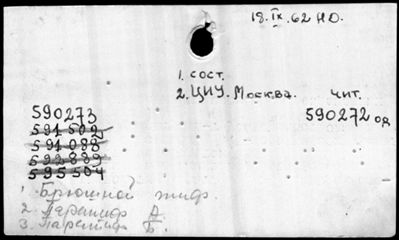 18.IX.62 НО.
1. сост.
2. ЦИУ. Москва. чит.
590273
590272 од
591502
591088
592889
595504
1. Брюшной тиф.
2. Паратиф А
3. Паратиф Б.